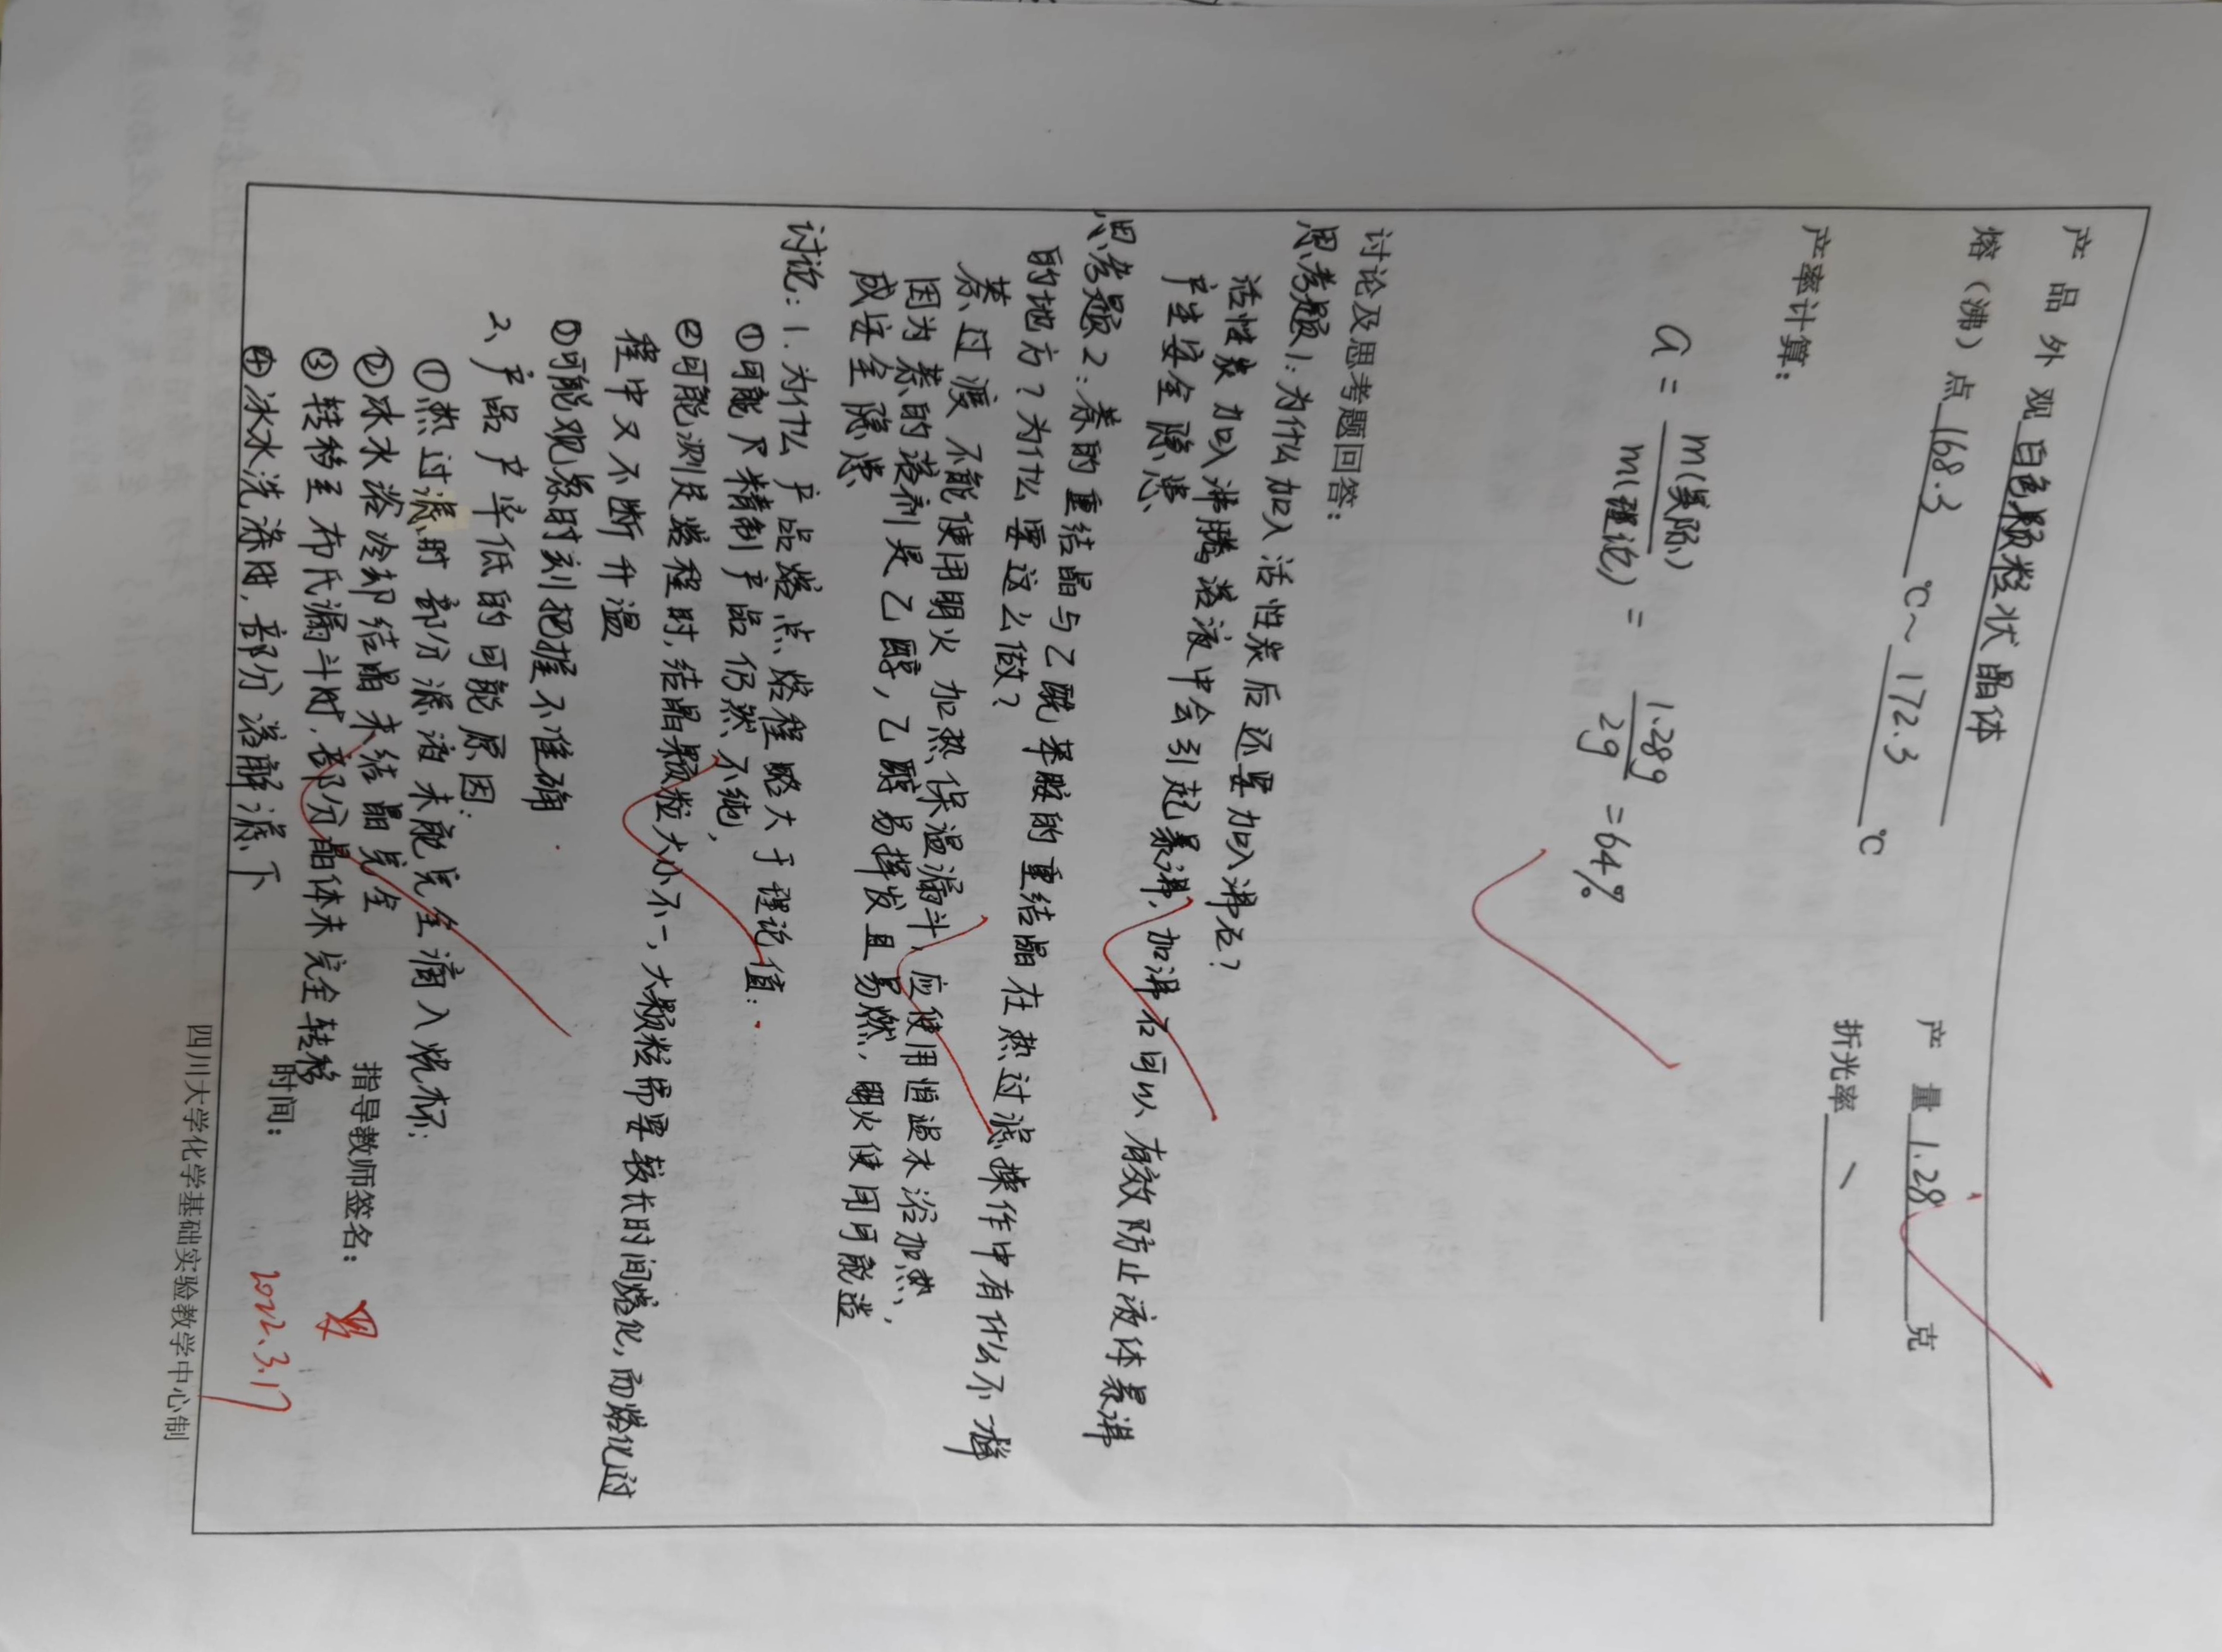 产品外观 白色颗粒状晶体 产量 1.28 克
熔（沸）点 168.3 ℃～ 172.3 ℃ 折光率 \
产率计算：
a = m(实际) / m(理论) = 1.28g / 2g = 64%
讨论及思考题回答：
思考题1：为什么加入活性炭后还要加入沸石？
活性炭加入沸腾溶液中会引起暴沸，加沸石可以有效防止液体暴沸
产生安全隐患、
思考题2：萘的重结晶与乙酰苯胺的重结晶在热过滤操作中有什么不一样
的地方？为什么要这么做？
萘过滤不能使用明火加热保温漏斗，应使用恒温水浴加热，
因为萘的溶剂是乙醇，乙醇易挥发且易燃，明火使用可能造
成安全隐患
讨论：1. 为什么产品熔点熔程略大于理论值：
①可能尺精制产品仍然不纯，
②可能测定熔程时，结晶颗粒大小不一，大颗粒需要较长时间熔化，而熔化过
程中又不断升温
③可能观察时刻把握不准确
2、产品产率低的可能原因：
①热过滤时部分滤液未能完全滴入烧杯；
②冰水浴冷却结晶未结晶完全
③转移至布氏漏斗时，部分晶体未完全转移
④冰水洗涤时，部分溶解滤下
指导教师签名：
时间： 2022.3.17
四川大学化学基础实验教学中心制